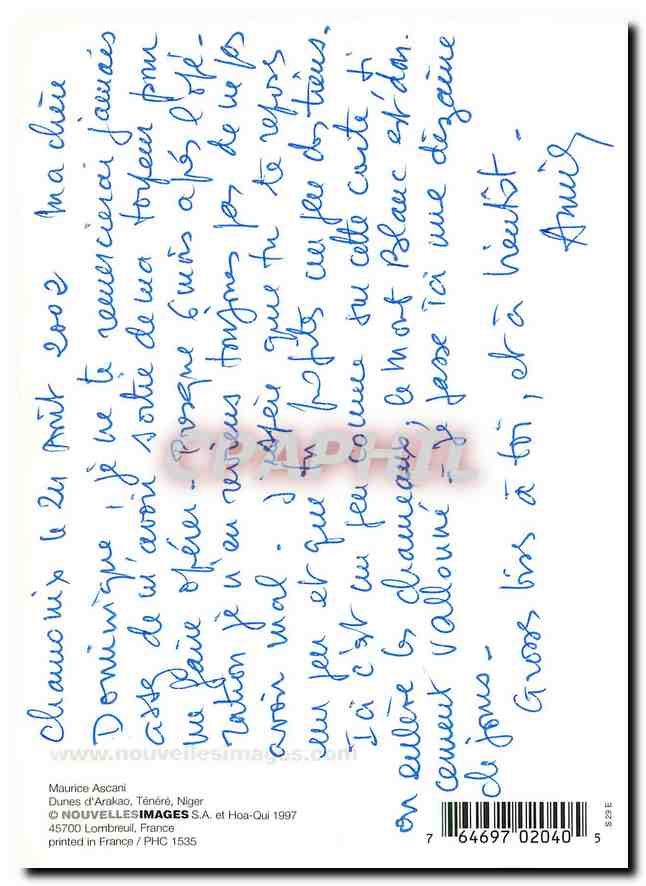 Chamonix le 24 Août 2002 Ma chère
Dominique, je ne te remercierai jamais
assez de m'avoir sortie de ma torpeur pour
me faire opérer - Presque 6 mois après l'opé-
ration je n'en reviens toujours pas de ne pas
avoir mal. J'espère que tu te reposes
un peu et que tu profites un peu des tiens.
Ici c'est un peu comme sur cette carte si
on enlève les chameaux; le Mont Blanc est dou-
cement vallonné - Je passe ici une dizaine
de jours -
Grosses bises à toi, et à bientôt -
Annie
CPAPHIL
www.nouvellesimages.com
Maurice Ascani
Dunes d'Arakao, Ténéré, Niger
© NOUVELLES IMAGES S.A. et Hoa-Qui 1997
45700 Lombreuil, France
printed in France / PHC 1535
7 64697 02040 5
S 29 E